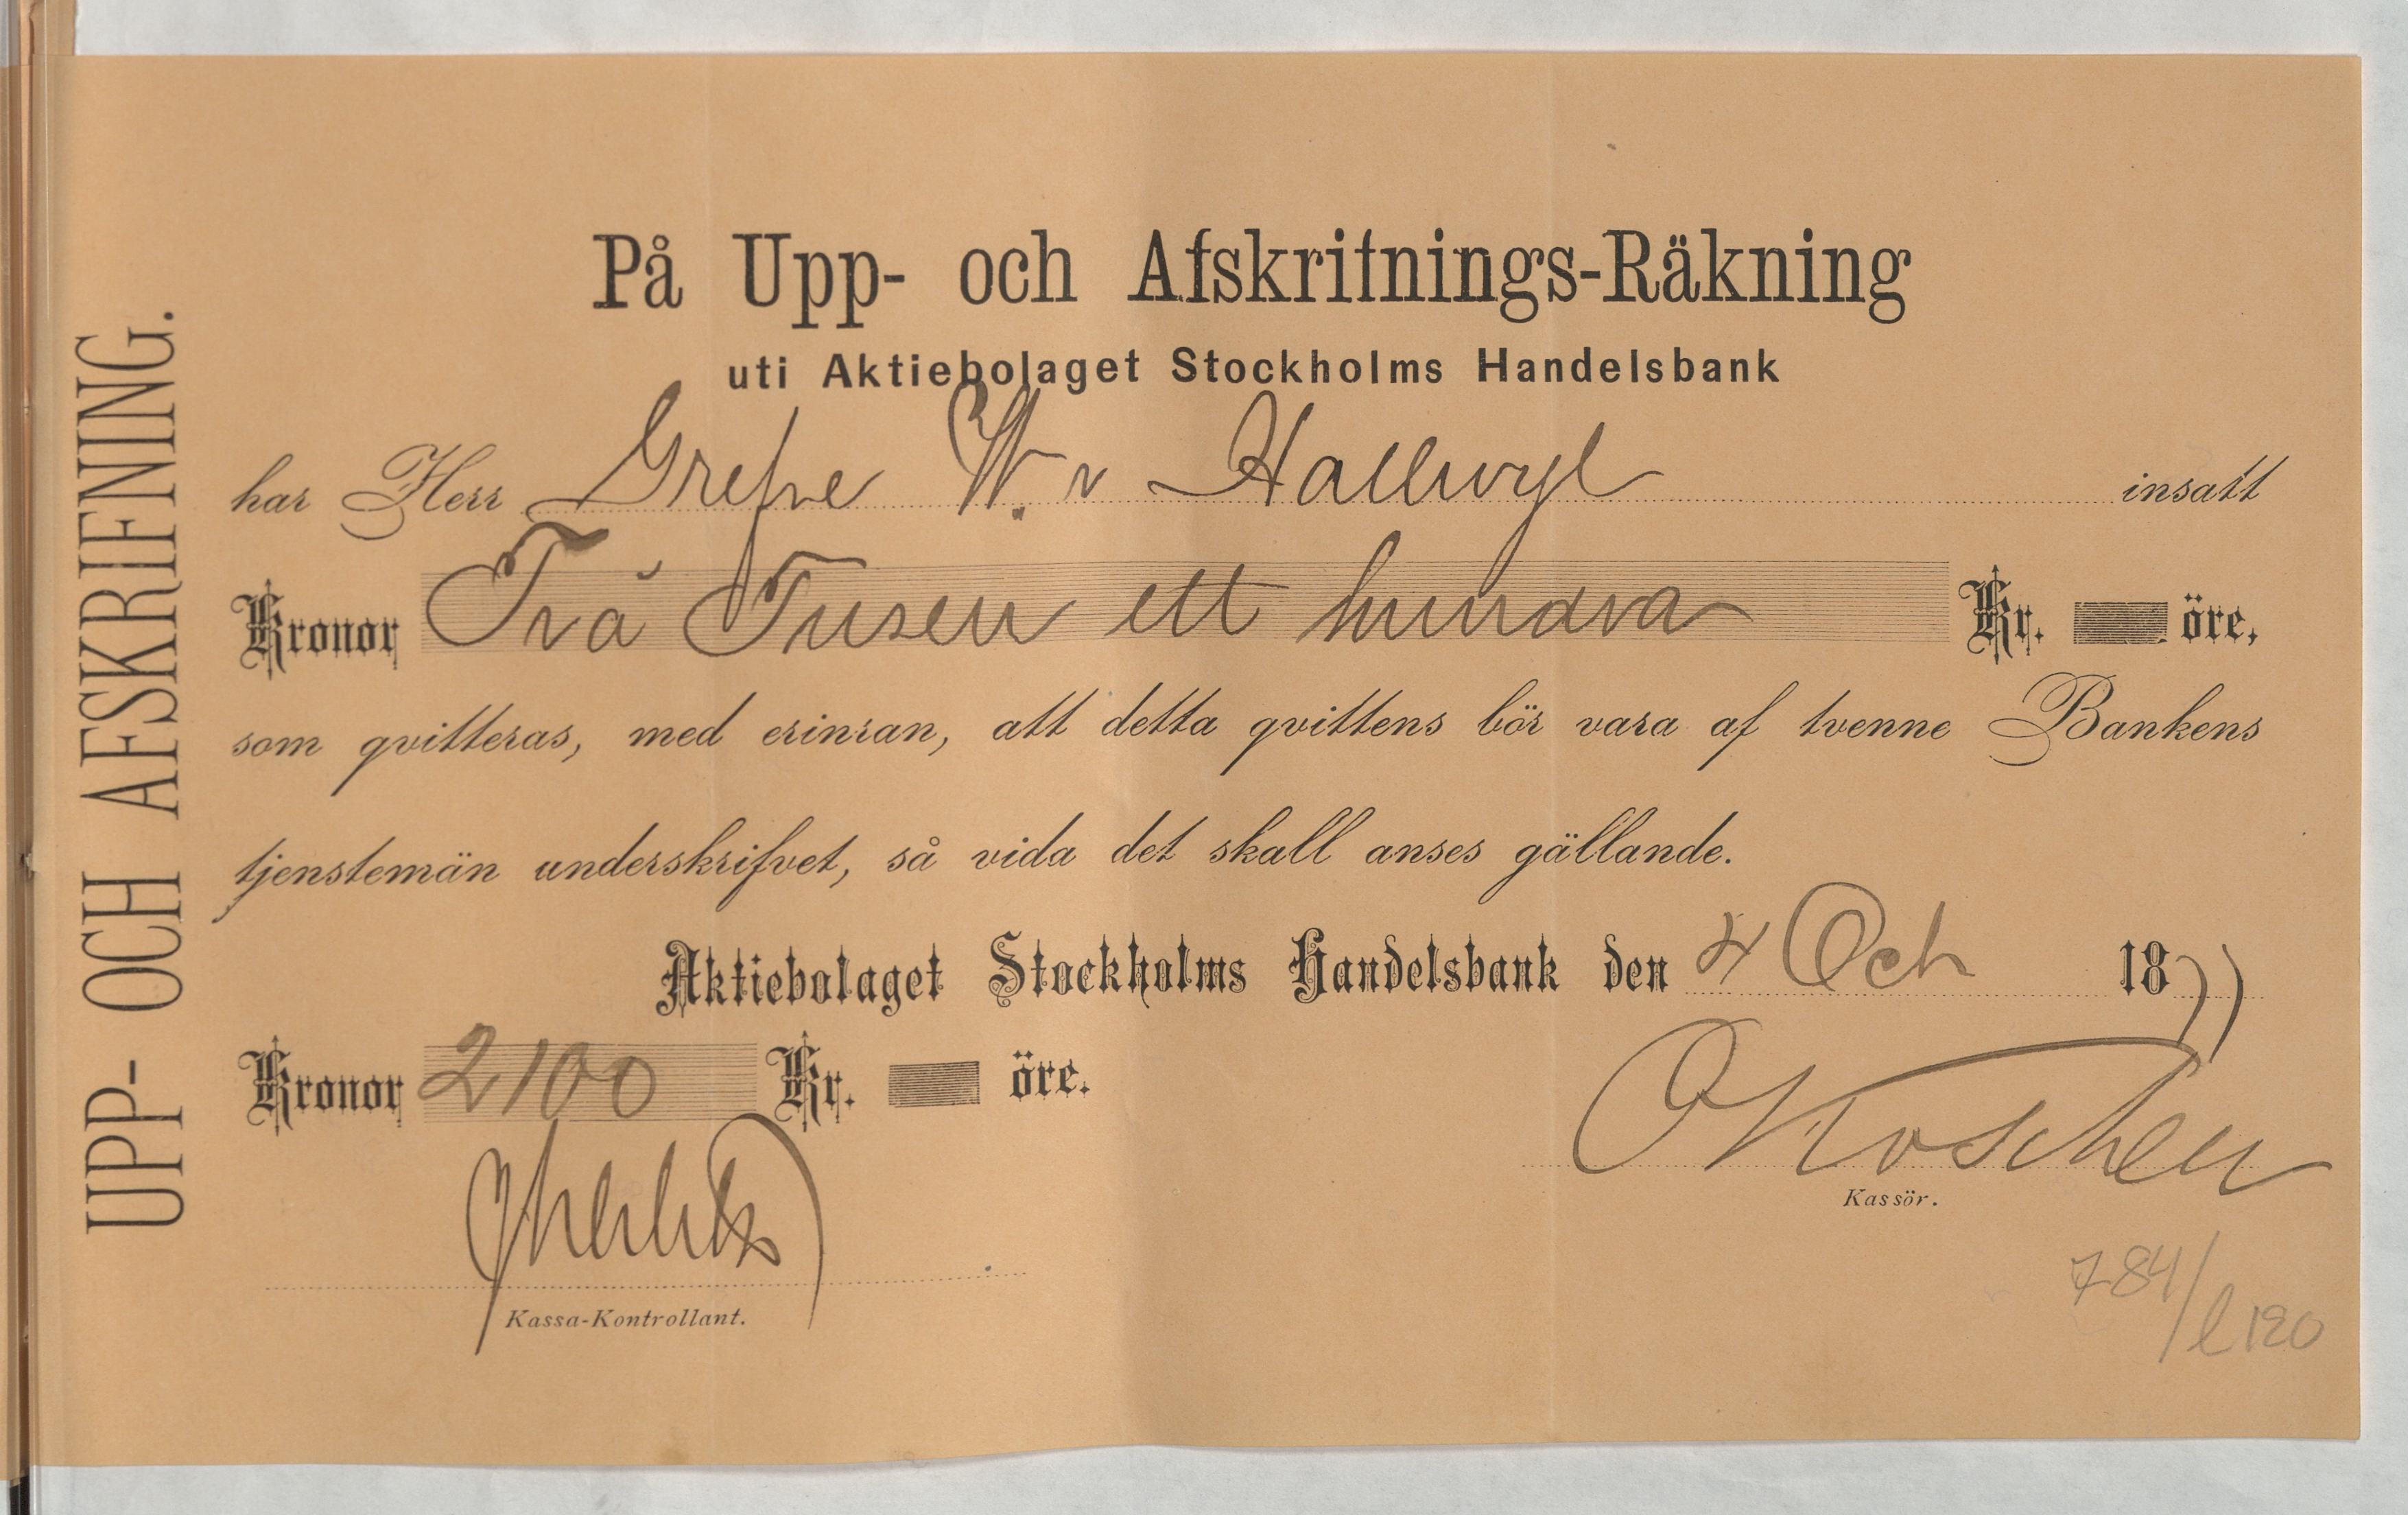 UPP- OCH AFSKRIFNING.
På Upp- och Afskrifnings-Räkning
uti Aktiebolaget Stockholms Handelsbank
har Herr Grefve W. v Hallwyl insatt
Kronor Två Tusen ett hundra Kr. öre,
som qvitteras, med erinran, att detta qvittens bör vara af tvenne Bankens
tjenstemän underskrifvet, så vida det skall anses gällande.
Aktiebolaget Stockholms Handelsbank den 4 Oct 1877
Kronor 2100 Kr. öre.
Kassör.
Kassa-Kontrollant.
784/l 120